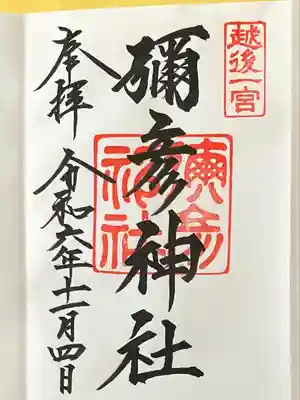 越後一宮
彌彦神社
奉拝
令和六年十一月四日